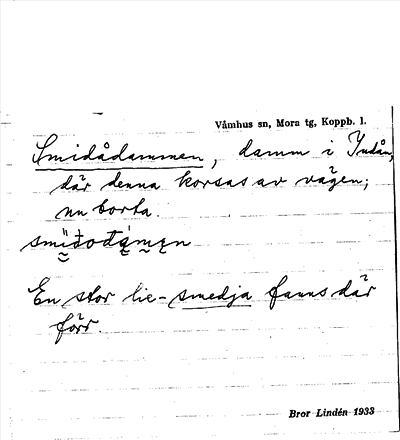 Våmhus sn, Mora tg, Koppb. l.
Smidådammen, damm i Indån,
där denna korsas av vägen;
nu borta.
En stor lie-smedja fanns där
förr.
Bror Lindén 1933